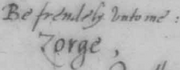 Be frendely Unto me :
Zorge ,